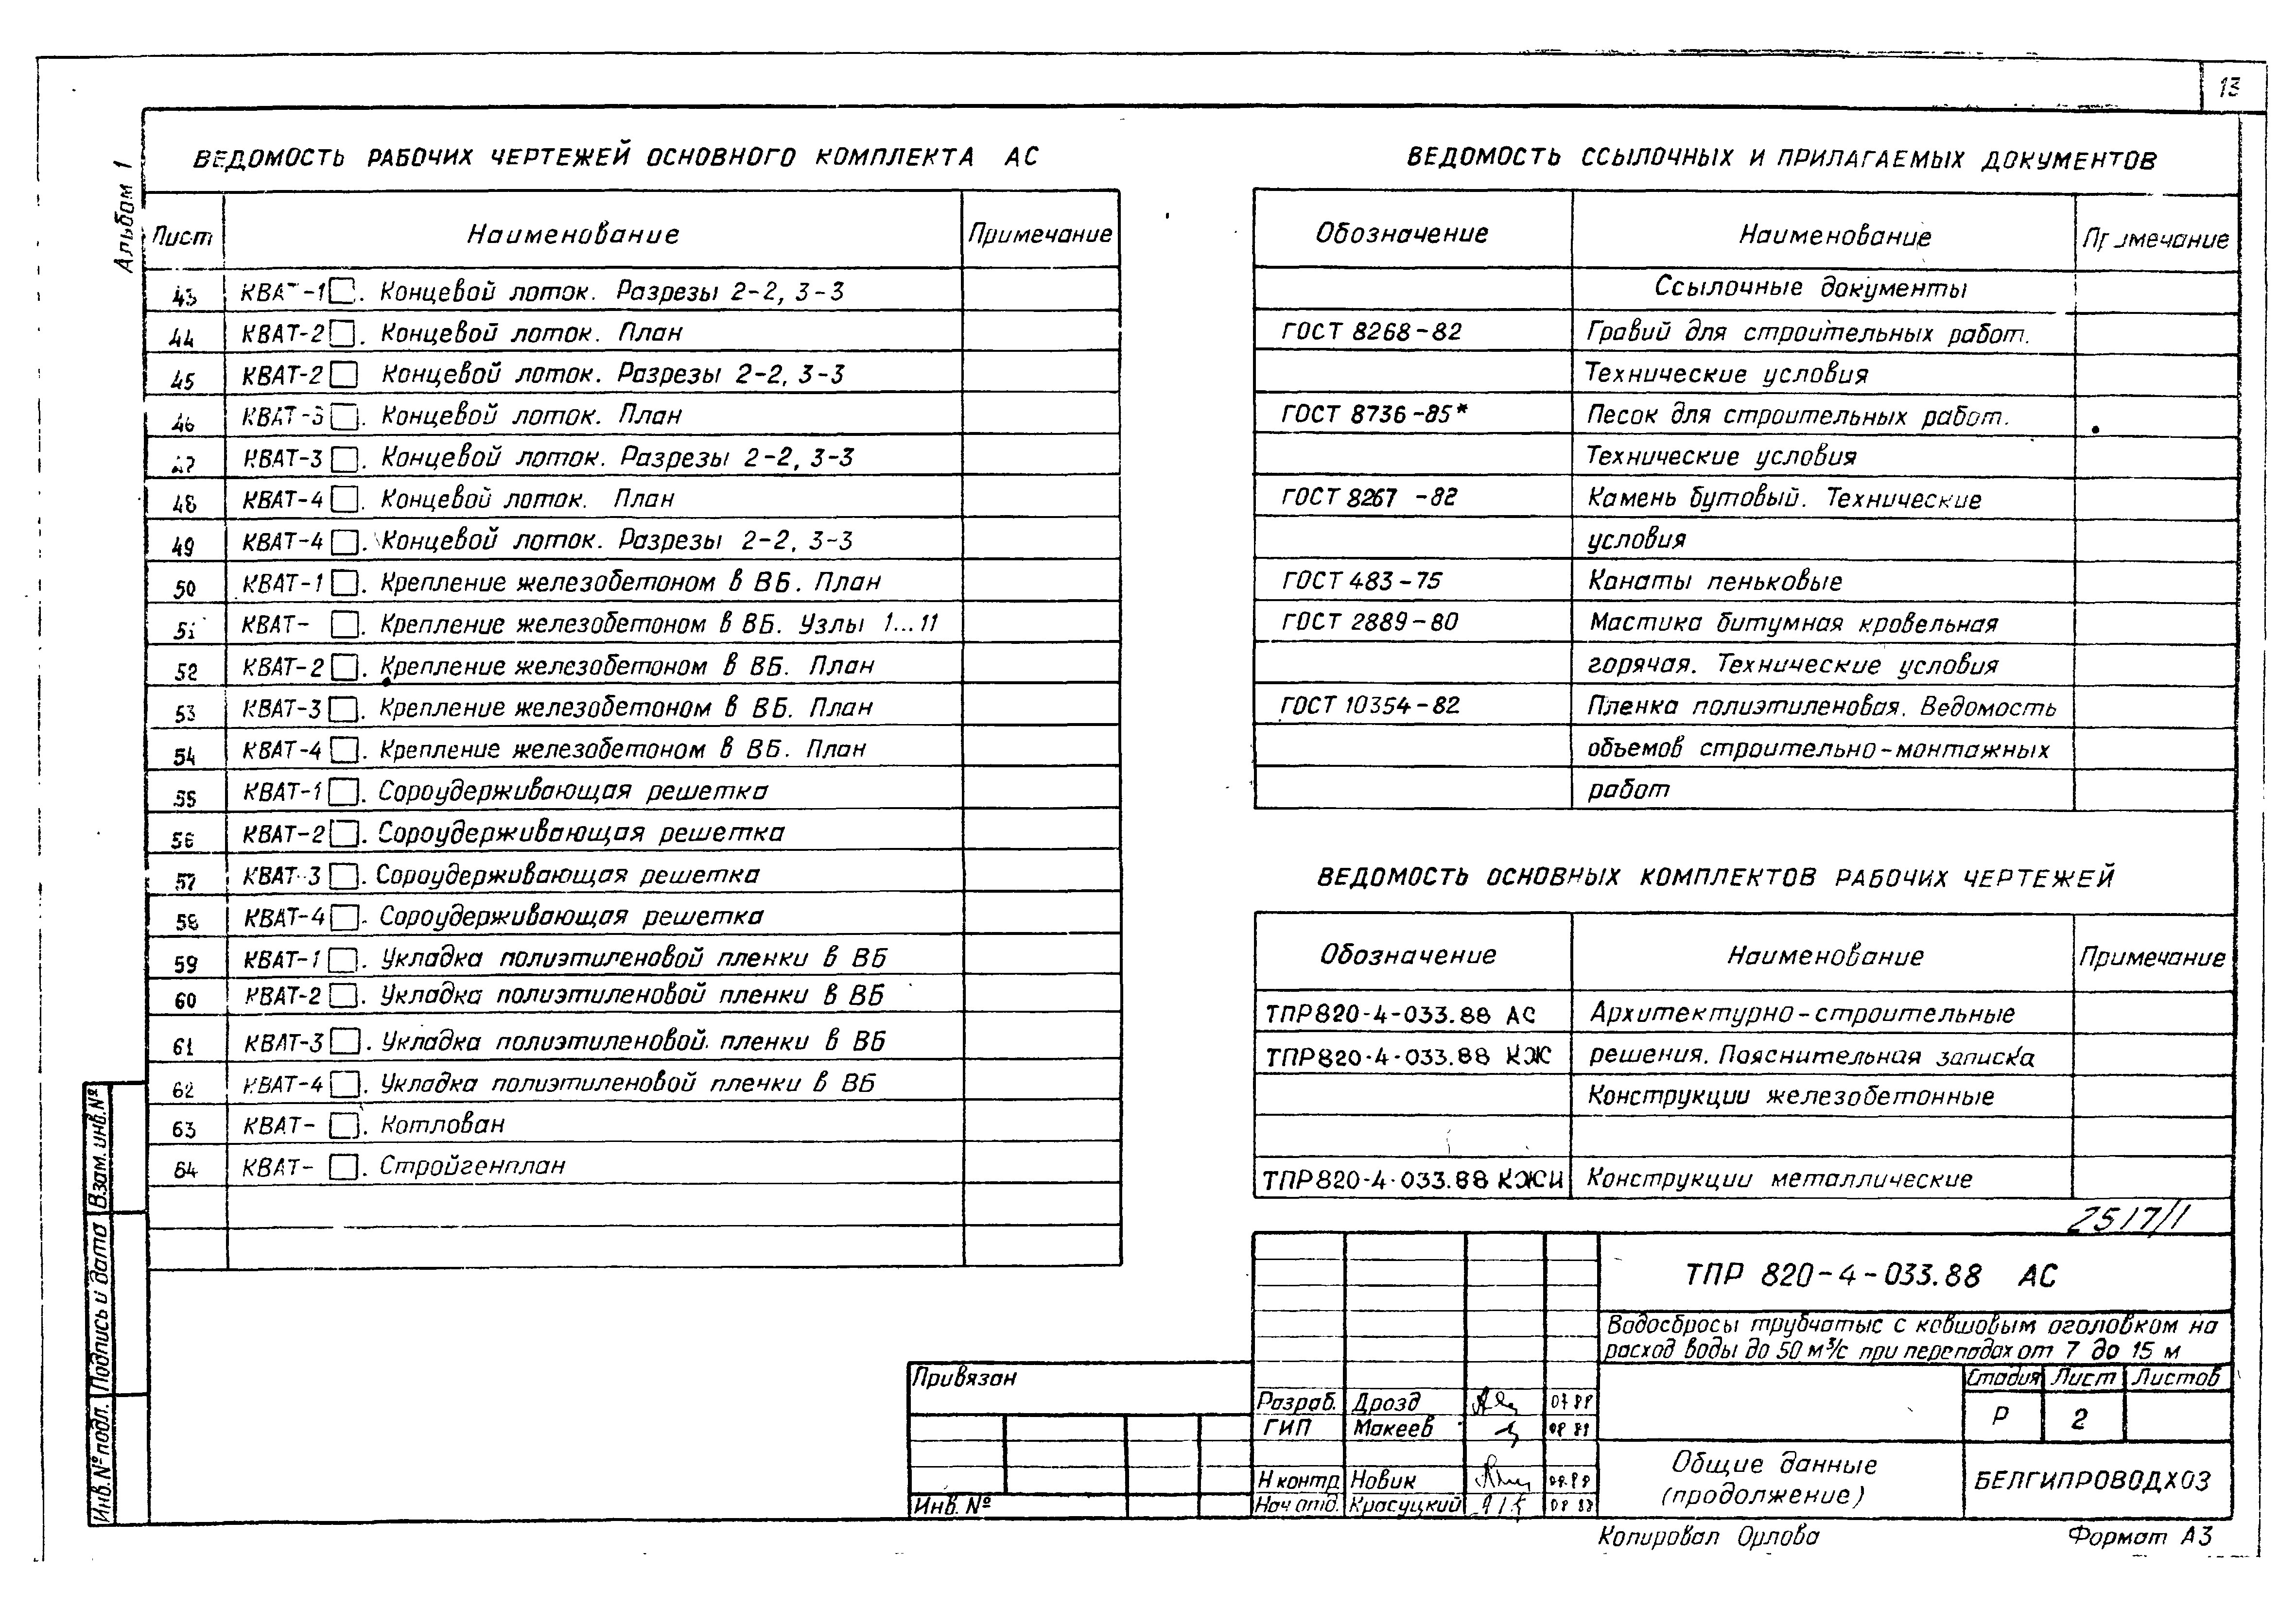 13
Альбом 1
ВЕДОМОСТЬ РАБОЧИХ ЧЕРТЕЖЕЙ ОСНОВНОГО КОМПЛЕКТА АС
Лист Наименование Примечание
43 КВАТ-1□. Концевой лоток. Разрезы 2-2, 3-3
44 КВАТ-2□. Концевой лоток. План
45 КВАТ-2□ Концевой лоток. Разрезы 2-2, 3-3
46 КВАТ-3□. Концевой лоток. План
47 КВАТ-3□. Концевой лоток. Разрезы 2-2, 3-3
48 КВАТ-4□. Концевой лоток. План
49 КВАТ-4□. Концевой лоток. Разрезы 2-2, 3-3
50 КВАТ-1□. Крепление железобетоном в ВБ. План
51 КВАТ- □. Крепление железобетоном в ВБ. Узлы 1...11
52 КВАТ-2□. Крепление железобетоном в ВБ. План
53 КВАТ-3□. Крепление железобетоном в ВБ. План
54 КВАТ-4□. Крепление железобетоном в ВБ. План
55 КВАТ-1□. Сороудерживающая решетка
56 КВАТ-2□. Сороудерживающая решетка
57 КВАТ-3□. Сороудерживающая решетка
58 КВАТ-4□. Сороудерживающая решетка
59 КВАТ-1□. Укладка полиэтиленовой пленки в ВБ
60 КВАТ-2□. Укладка полиэтиленовой пленки в ВБ
61 КВАТ-3□. Укладка полиэтиленовой пленки в ВБ
62 КВАТ-4□. Укладка полиэтиленовой пленки в ВБ
63 КВАТ- □. Котлован
64 КВАТ- □. Стройгенплан
ВЕДОМОСТЬ ССЫЛОЧНЫХ И ПРИЛАГАЕМЫХ ДОКУМЕНТОВ
Обозначение Наименование Примечание
Ссылочные документы
ГОСТ 8268-82 Гравий для строительных работ.
Технические условия
ГОСТ 8736-85* Песок для строительных работ.
Технические условия
ГОСТ 8267 -82 Камень бутовый. Технические
условия
ГОСТ 483-75 Канаты пеньковые
ГОСТ 2889-80 Мастика битумная кровельная
горячая. Технические условия
ГОСТ 10354-82 Пленка полиэтиленовая. Ведомость
объемов строительно-монтажных
работ
ВЕДОМОСТЬ ОСНОВНЫХ КОМПЛЕКТОВ РАБОЧИХ ЧЕРТЕЖЕЙ
Обозначение Наименование Примечание
ТПР820-4-033.88 АС Архитектурно-строительные
ТПР820-4-033.88 КЖ решения. Пояснительная записка
Конструкции железобетонные
ТПР820-4-033.88 КЖИ Конструкции металлические
2517/1
ТПР 820-4-033.88 АС
Водосбросы трубчатые с ковшовым оголовком на
расход воды до 50 м³/с при перепадах от 7 до 15 м
Стадия Лист Листов
Р 2
Общие данные
(продолжение)
БЕЛГИПРОВОДХОЗ
Разраб. Дрозд 07.88
ГИП Макеев 08 88
Н контр Новик 08.88
Нач отд. Красуцкий 08 88
Привязан
Инв. №
Взам. инв. №
Подпись и дата
Инв. № подл.
Копировал Орлова
Формат А3